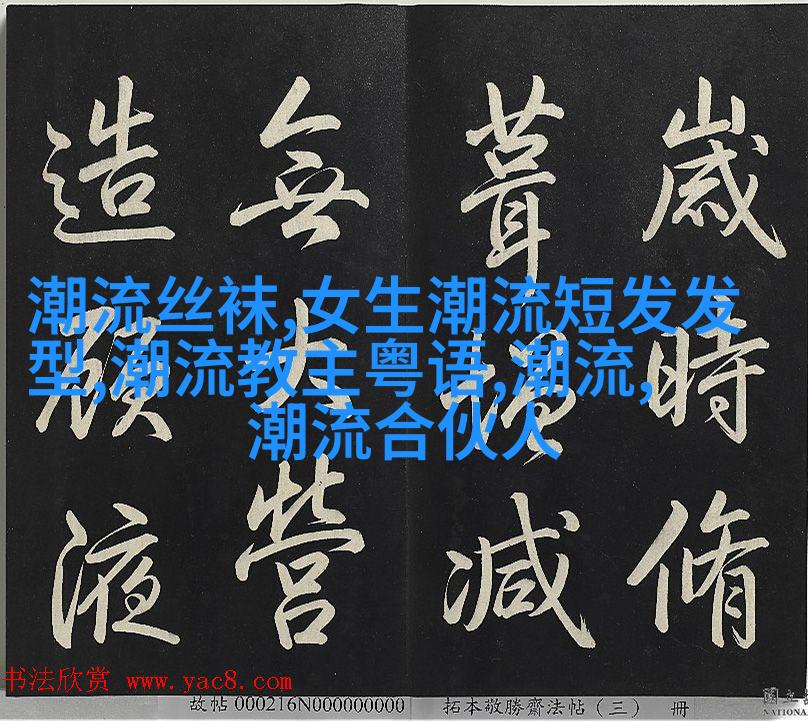 歲時脩
葺增減
無大營
造顧液
潮流丝袜,女生潮流短发发
型,潮流教主粤语,潮流,
潮流合伙人
书法欣赏 www.yac8.com
故帖 000216N000000000
拓本敬勝齋法帖（三） 冊
國立
NATIONA